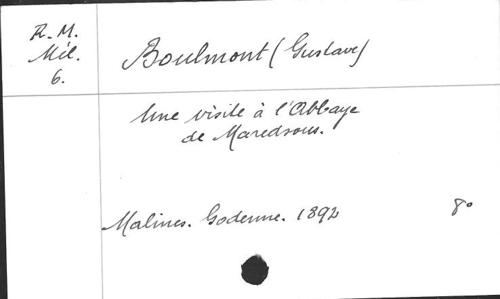 R. M.
Mél.
6.
Boulmont (Gustave)
Une visite à l'Abbaye
de Maredsous.
Malines. Godenne. 1892 8°